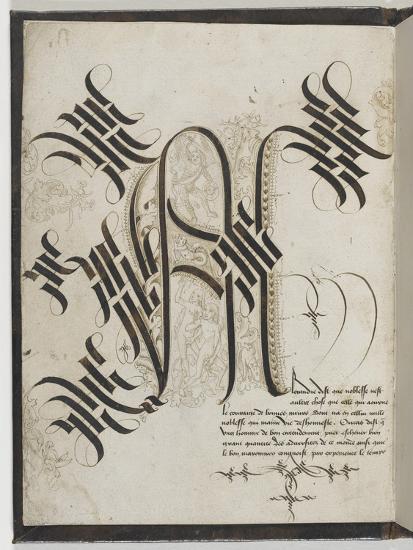 Alexandre dist que noblesse nest
aultre chose que celle qui aourne
le couraige de bonnes meurs Dont na en cellui nulle
noblesse qui maine vie deshonneste. Ovide dist q
ung homme de bon entendement puet eschever bien
grant quantite des adversites de ce monde ainsi que
le bon maronnier congnoist par experience le temps